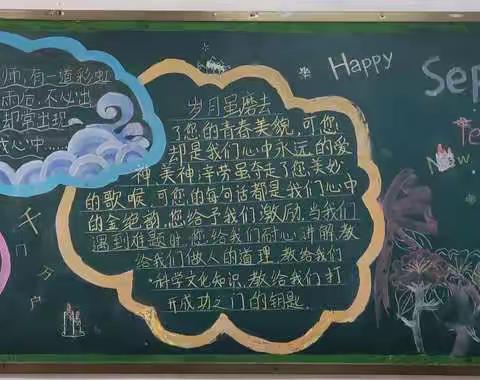 师,有一道彩虹
雨后,不心出
却常出现
我心中……
岁月虽磨去
了您的青春美貌,可您
却是我们心中永远的爱
神,美神;辛劳虽夺走了您美妙
的歌喉,可您的每句话都是我们心中
的金绝韵,您给予我们激励,当我们
遇到难题时,您给我们耐心讲解,教
给我们做人的道理,教给我们
科学文化知识,教给我们打
开成功之门的钥匙.
Happy
Sep
Te
New
千
门
万
户